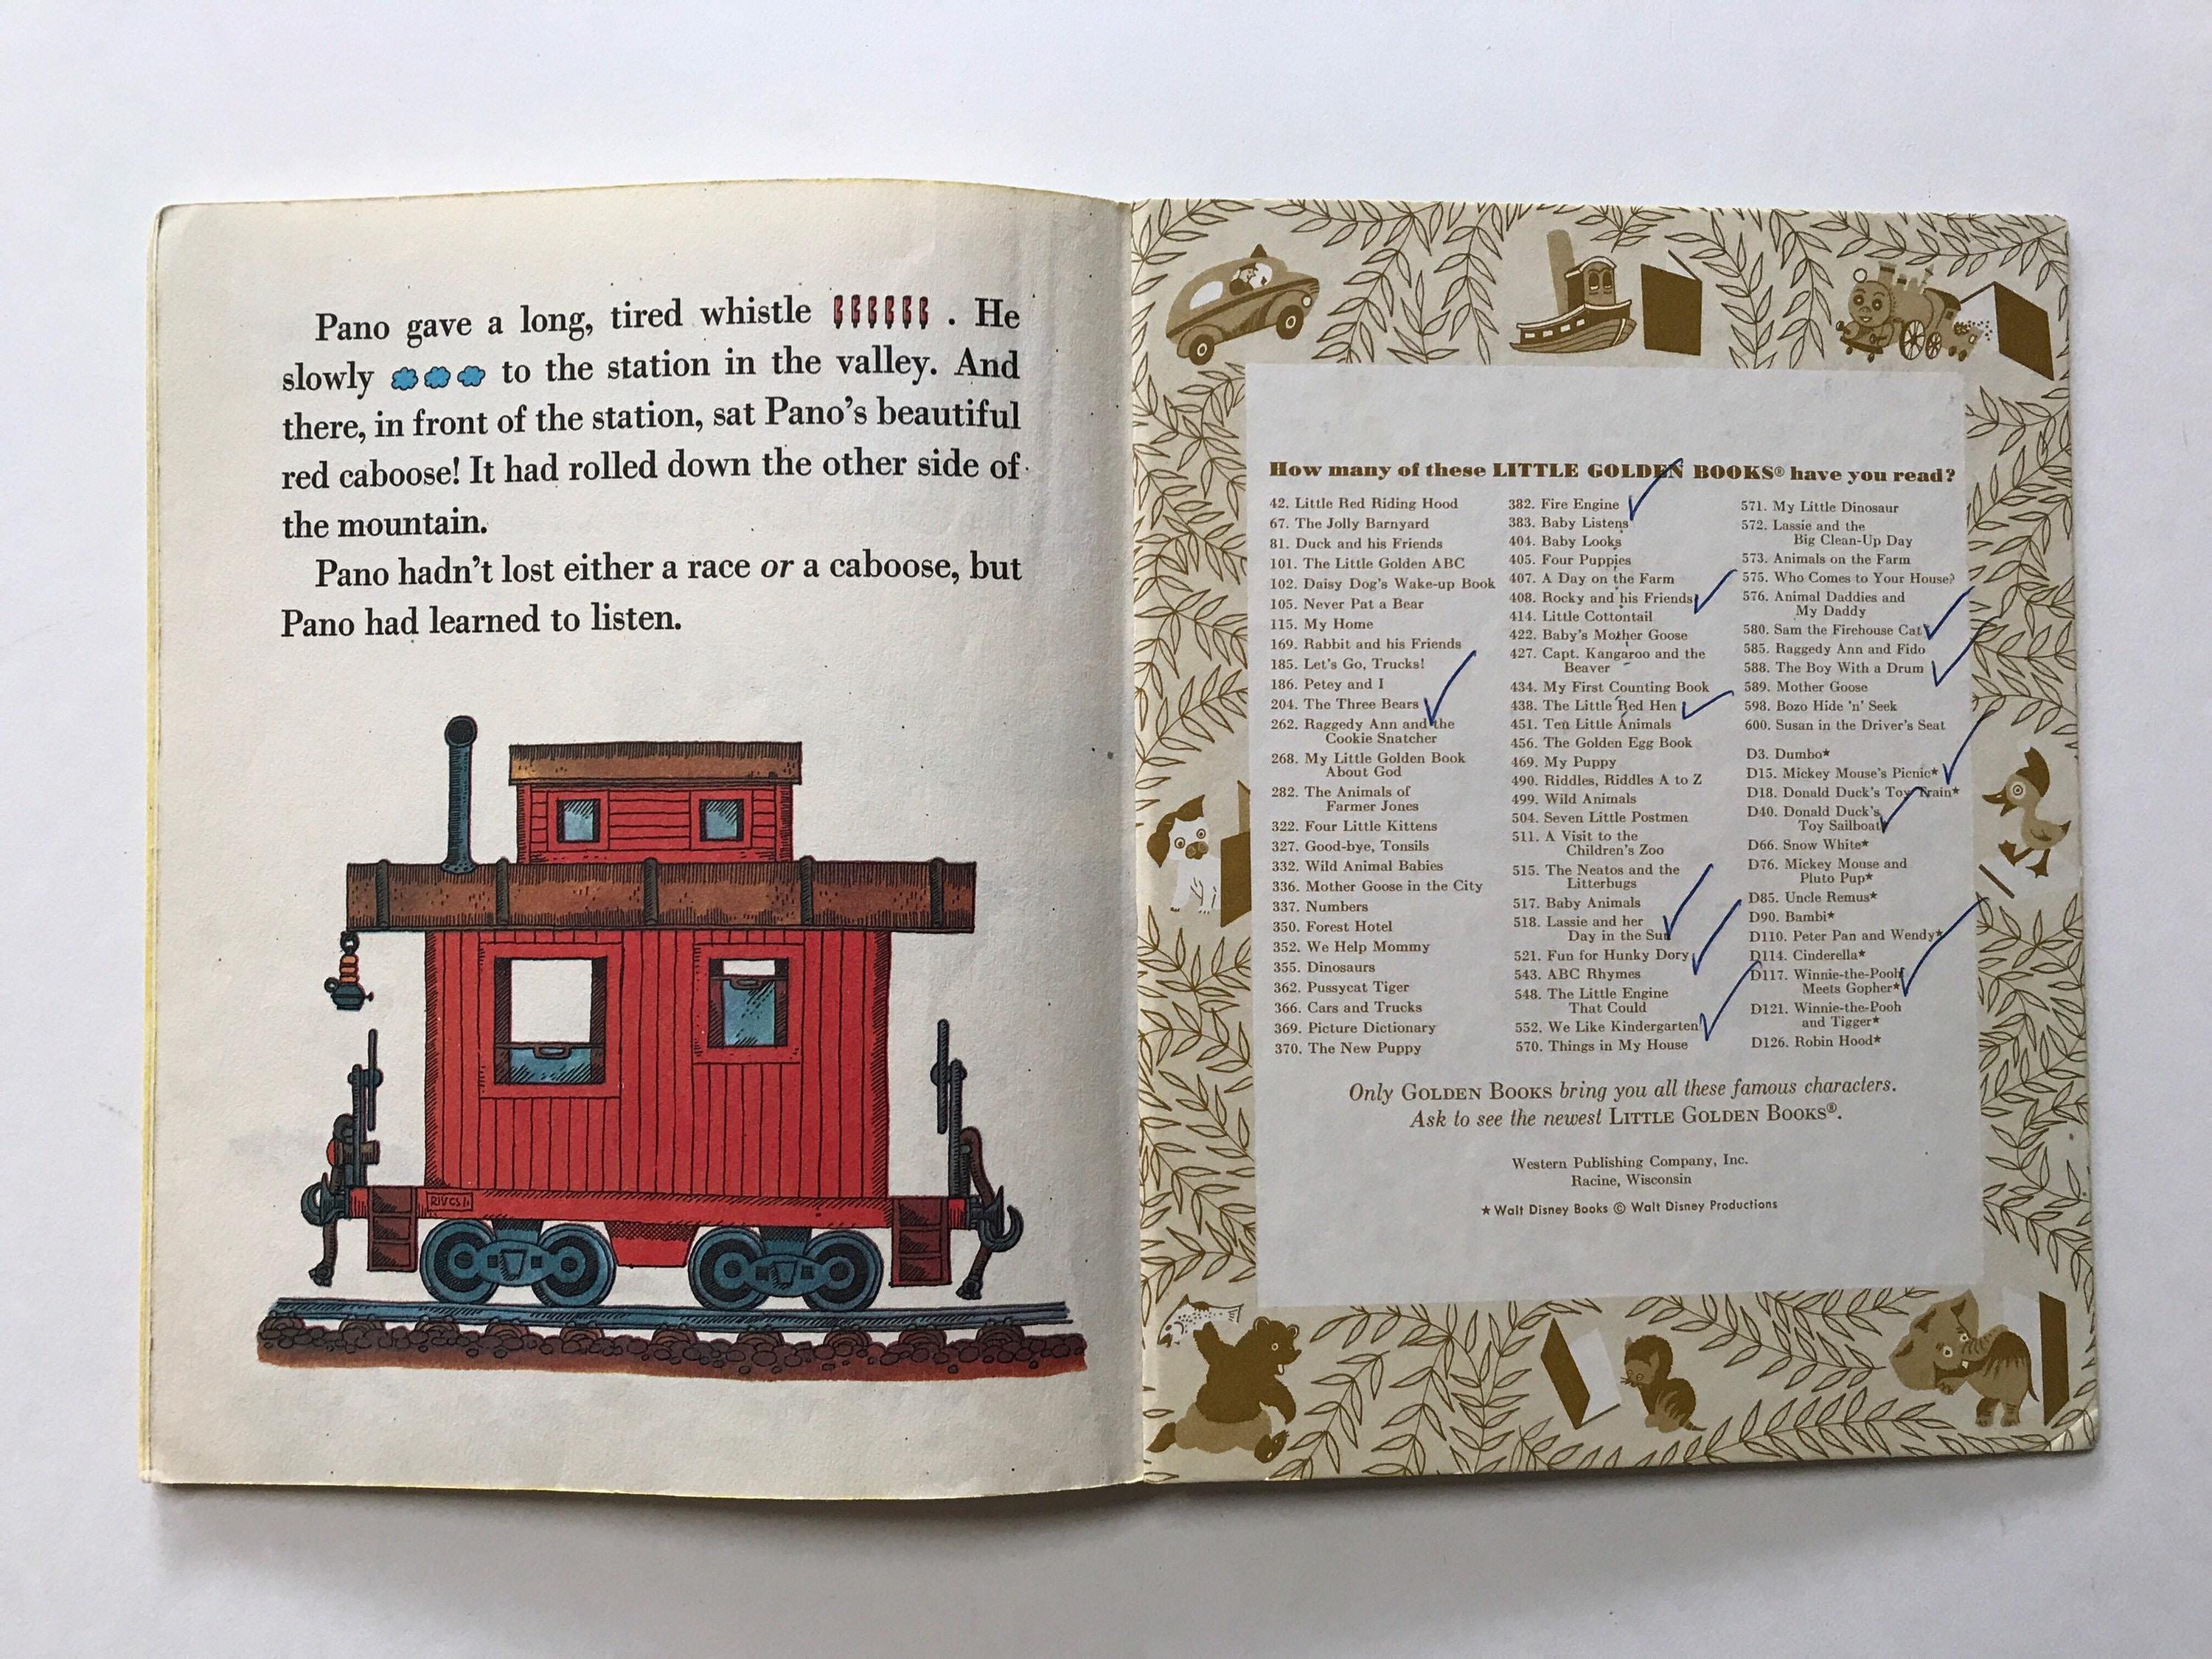 Pano gave a long, tired whistle . He
slowly to the station in the valley. And
there, in front of the station, sat Pano's beautiful
red caboose! It had rolled down the other side of
the mountain.
Pano hadn't lost either a race or a caboose, but
Pano had learned to listen.
How many of these LITTLE GOLDEN BOOKS® have you read?
42. Little Red Riding Hood
67. The Jolly Barnyard
81. Duck and his Friends
101. The Little Golden ABC
102. Daisy Dog's Wake-up Book
105. Never Pat a Bear
115. My Home
169. Rabbit and his Friends
185. Let's Go, Trucks!
186. Petey and I
204. The Three Bears
262. Raggedy Ann and the
Cookie Snatcher
268. My Little Golden Book
About God
282. The Animals of
Farmer Jones
322. Four Little Kittens
327. Good-bye, Tonsils
332. Wild Animal Babies
336. Mother Goose in the City
337. Numbers
350. Forest Hotel
352. We Help Mommy
355. Dinosaurs
362. Pussycat Tiger
366. Cars and Trucks
369. Picture Dictionary
370. The New Puppy
382. Fire Engine
383. Baby Listens
404. Baby Looks
405. Four Puppies
407. A Day on the Farm
408. Rocky and his Friends
414. Little Cottontail
422. Baby's Mother Goose
427. Capt. Kangaroo and the
Beaver
434. My First Counting Book
438. The Little Red Hen
451. Ten Little Animals
456. The Golden Egg Book
469. My Puppy
490. Riddles, Riddles A to Z
499. Wild Animals
504. Seven Little Postmen
511. A Visit to the
Children's Zoo
515. The Neatos and the
Litterbugs
517. Baby Animals
518. Lassie and her
Day in the Sun
521. Fun for Hunky Dory
543. ABC Rhymes
548. The Little Engine
That Could
552. We Like Kindergarten
570. Things in My House
571. My Little Dinosaur
572. Lassie and the
Big Clean-Up Day
573. Animals on the Farm
575. Who Comes to Your House?
576. Animal Daddies and
My Daddy
580. Sam the Firehouse Cat
585. Raggedy Ann and Fido
588. The Boy With a Drum
589. Mother Goose
598. Bozo Hide 'n' Seek
600. Susan in the Driver's Seat
D3. Dumbo★
D15. Mickey Mouse's Picnic★
D18. Donald Duck's Toy Train★
D40. Donald Duck's
Toy Sailboat
D66. Snow White★
D76. Mickey Mouse and
Pluto Pup★
D85. Uncle Remus★
D90. Bambi★
D110. Peter Pan and Wendy★
D114. Cinderella★
D117. Winnie-the-Pooh
Meets Gopher★
D121. Winnie-the-Pooh
and Tigger★
D126. Robin Hood★
Only GOLDEN BOOKS bring you all these famous characters.
Ask to see the newest LITTLE GOLDEN BOOKS®.
Western Publishing Company, Inc.
Racine, Wisconsin
★Walt Disney Books © Walt Disney Productions